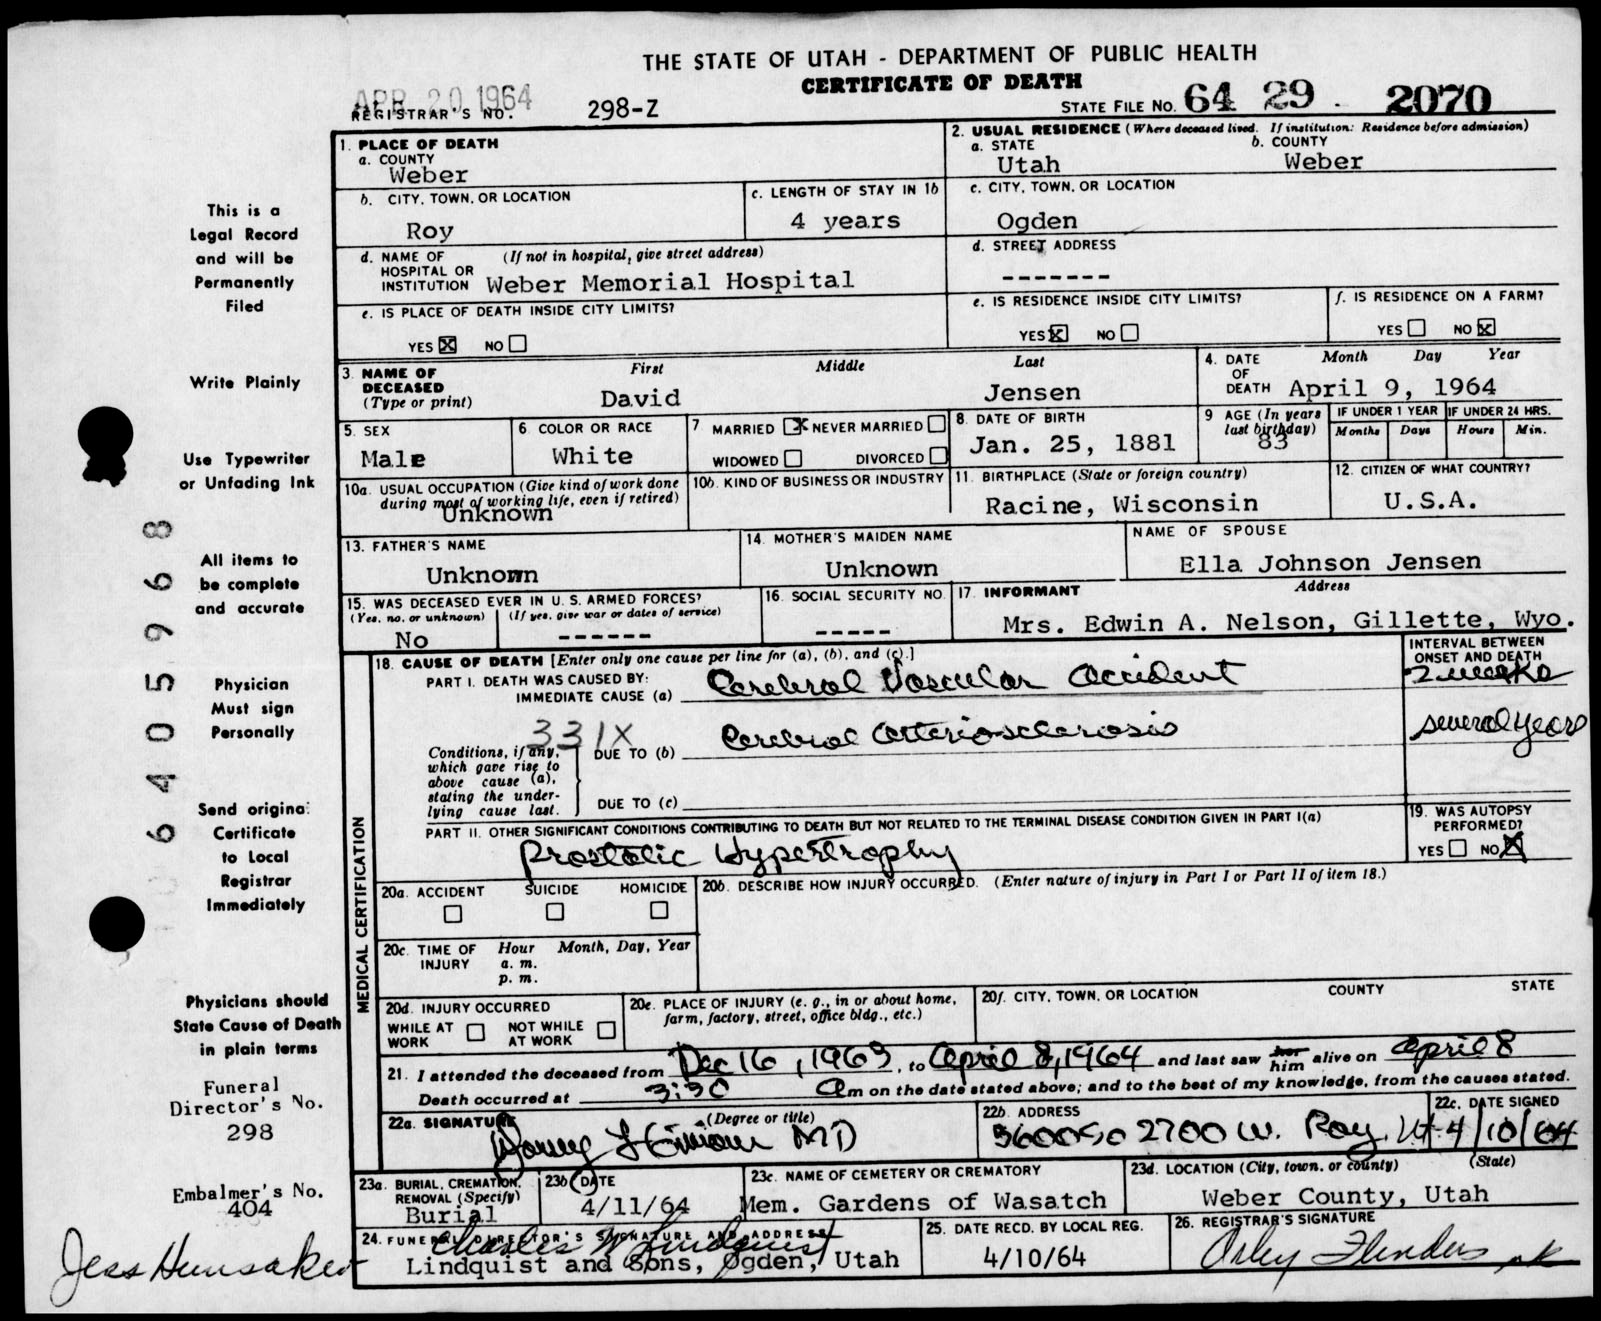 THE STATE OF UTAH - DEPARTMENT OF PUBLIC HEALTH
CERTIFICATE OF DEATH
APR 20 1964
REGISTRAR'S NO. 298-Z
STATE FILE NO. 64 29 . 2070
1. PLACE OF DEATH
a. COUNTY
Weber
2. USUAL RESIDENCE (Where deceased lived. If institution: Residence before admission)
a. STATE
Utah
b. COUNTY
Weber
b. CITY, TOWN, OR LOCATION
Roy
c. LENGTH OF STAY IN 1b
4 years
c. CITY, TOWN, OR LOCATION
Ogden
d. NAME OF HOSPITAL OR INSTITUTION (If not in hospital, give street address)
Weber Memorial Hospital
d. STREET ADDRESS
-------
e. IS PLACE OF DEATH INSIDE CITY LIMITS?
YES X NO
e. IS RESIDENCE INSIDE CITY LIMITS?
YES X NO
f. IS RESIDENCE ON A FARM?
YES NO X
3. NAME OF DECEASED (Type or print)
First Middle Last
David Jensen
4. DATE OF DEATH
Month Day Year
April 9, 1964
5. SEX
Male
6. COLOR OR RACE
White
7. MARRIED X NEVER MARRIED
WIDOWED DIVORCED
8. DATE OF BIRTH
Jan. 25, 1881
9 AGE (In years last birthday)
83
IF UNDER 1 YEAR
Months Days
IF UNDER 24 HRS.
Hours Min.
10a. USUAL OCCUPATION (Give kind of work done during most of working life, even if retired)
Unknown
10b. KIND OF BUSINESS OR INDUSTRY
11. BIRTHPLACE (State or foreign country)
Racine, Wisconsin
12. CITIZEN OF WHAT COUNTRY?
U.S.A.
13. FATHER'S NAME
Unknown
14. MOTHER'S MAIDEN NAME
Unknown
NAME OF SPOUSE
Ella Johnson Jensen
15. WAS DECEASED EVER IN U. S. ARMED FORCES?
(Yes, no, or unknown) (If yes, give war or dates of service)
No ------
16. SOCIAL SECURITY NO.
-----
17. INFORMANT Address
Mrs. Edwin A. Nelson, Gillette, Wyo.
MEDICAL CERTIFICATION
18. CAUSE OF DEATH [Enter only one cause per line for (a), (b), and (c).]
INTERVAL BETWEEN ONSET AND DEATH
PART I. DEATH WAS CAUSED BY:
IMMEDIATE CAUSE (a) Cerebral Vascular Accident
2 weeks
331X
Conditions, if any, which gave rise to above cause (a), stating the underlying cause last.
DUE TO (b) Cerebral Arteriosclerosis
several years
DUE TO (c)
PART II. OTHER SIGNIFICANT CONDITIONS CONTRIBUTING TO DEATH BUT NOT RELATED TO THE TERMINAL DISEASE CONDITION GIVEN IN PART I(a)
Prostatic Hypertrophy
19. WAS AUTOPSY PERFORMED?
YES NO X
20a. ACCIDENT SUICIDE HOMICIDE
20b. DESCRIBE HOW INJURY OCCURRED. (Enter nature of injury in Part I or Part II of item 18.)
20c. TIME OF INJURY
Hour Month, Day, Year
a. m.
p. m.
20d. INJURY OCCURRED
WHILE AT WORK NOT WHILE AT WORK
20e. PLACE OF INJURY (e. g., in or about home, farm, factory, street, office bldg., etc.)
20f. CITY, TOWN, OR LOCATION COUNTY STATE
21. I attended the deceased from Dec 16, 1963, to April 8, 1964 and last saw her him alive on April 8
Death occurred at 3:30 A m on the date stated above; and to the best of my knowledge, from the causes stated.
22a. SIGNATURE (Degree or title)
MD
22b. ADDRESS
5600 So 2700 W. Roy, Ut
22c. DATE SIGNED
4/10/64
23a. BURIAL, CREMATION, REMOVAL (Specify)
Burial
23b DATE
4/11/64
23c. NAME OF CEMETERY OR CREMATORY
Mem. Gardens of Wasatch
23d. LOCATION (City, town, or county) (State)
Weber County, Utah
24. FUNERAL DIRECTOR'S SIGNATURE AND ADDRESS
Charles W Lindquist
Lindquist and Sons, Ogden, Utah
25. DATE RECD. BY LOCAL REG.
4/10/64
26. REGISTRAR'S SIGNATURE
This is a
Legal Record
and will be
Permanently
Filed
Write Plainly
Use Typewriter
or Unfading Ink
All items to
be complete
and accurate
Physician
Must sign
Personally
Send original
Certificate
to Local
Registrar
Immediately
Physicians should
State Cause of Death
in plain terms
Funeral
Director's No.
298
Embalmer's No.
404
Jess Hunsaker
6405968